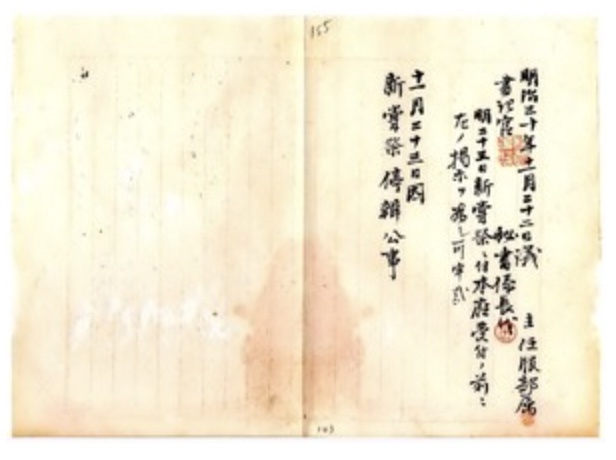 155
明治三十年十一月二十二日議
主任服部属
書記官
秘書係長
明二十三日新嘗祭ニ付本府受付ノ前ニ
左ノ掲示ヲ揚ク可申哉
十一月二十三日因
新嘗祭停辦公事